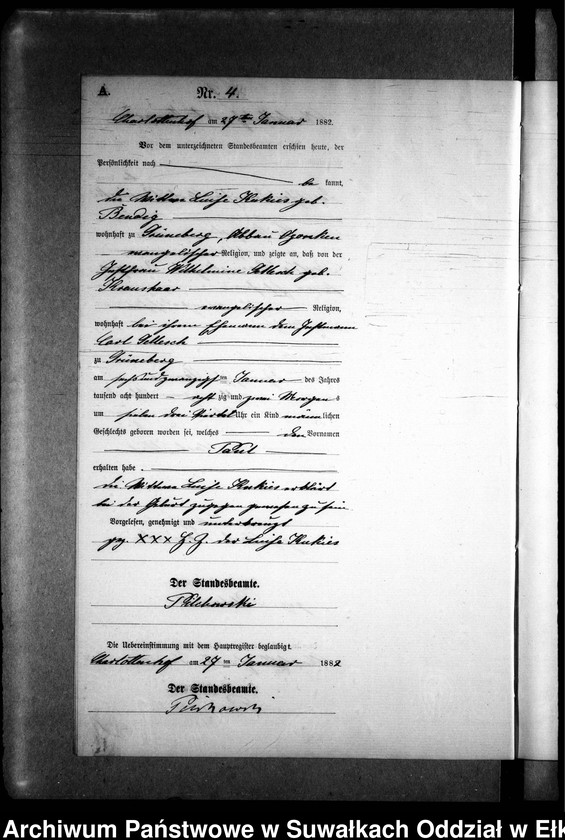 A. Nr. 4.
Charlottenhof am 27ten Januar 1882.
Vor dem unterzeichneten Standesbeamten erschien heute, der
Persönlichkeit nach
be kannt,
die Wittwe Luise Kukies geb.
Bendig
wohnhaft zu Grüneberg, Abbau
evangelischer Religion, und zeigte an, daß von der
Wilhelmine Gellesch geb.
Kranskaar
evangelischer Religion,
wohnhaft bei ihrem Ehemann dem
Carl Gellesch
zu Grüneberg
am sechsundzwanzigsten Januar des Jahres
tausend acht hundert achtzig und zwei Morgens
um sieben drei Viertel Uhr ein Kind männlichen
Geschlechts geboren worden sei, welches den Vornamen
Paul
erhalten habe.
die Wittwe Luise Kukies erklärt
bei der Geburt zugegen gewesen zu sein
Vorgelesen, genehmigt und unterkreuzt
gez. XXX H. Z. der Luise Kukies
Der Standesbeamte.
Die Uebereinstimmung mit dem Hauptregister beglaubigt.
Charlottenhof am 27 ten Januar 1882
Der Standesbeamte.
Archiwum Państwowe w Suwałkach Oddział w Ełk